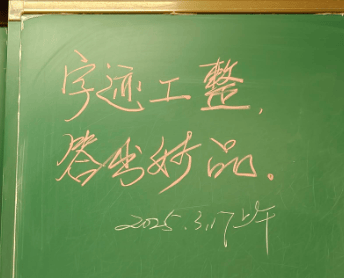 字迹工整,
答出妙品。
2025.3.17上午